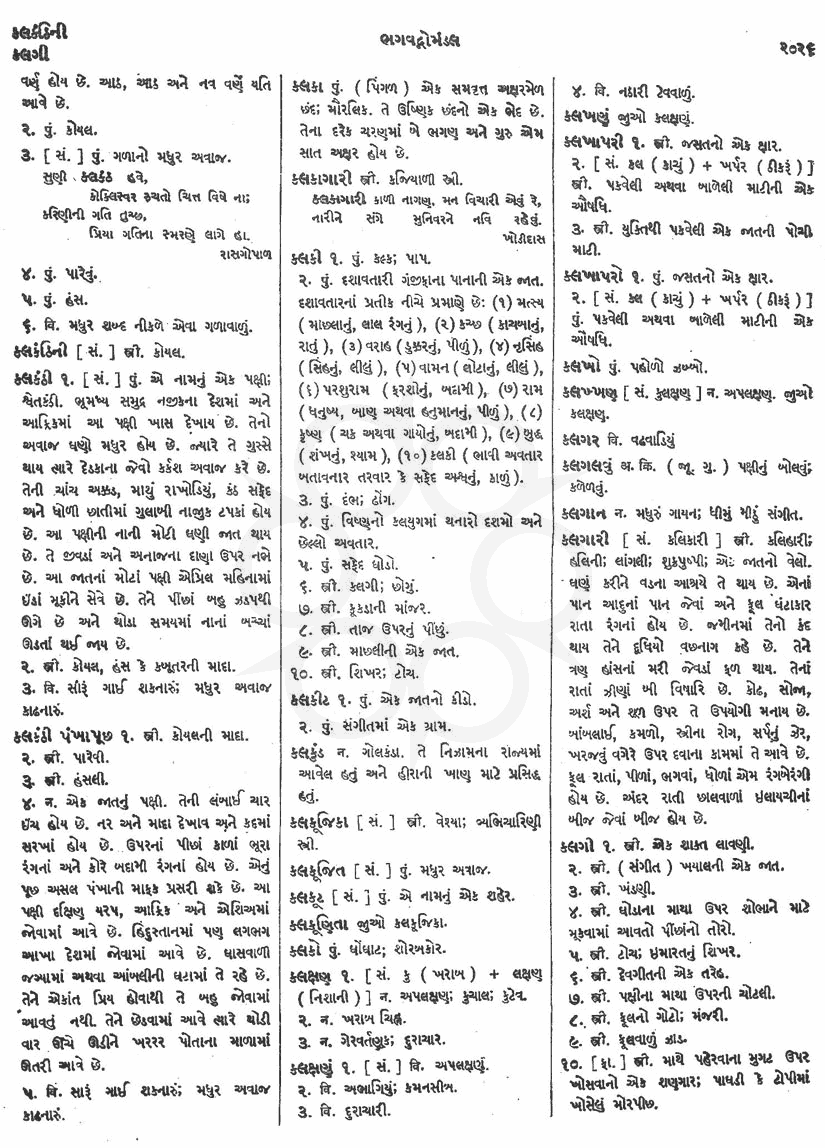 કલકંઠિની
કલગી
ભગવદ્ગોમંડલ
૨૦૨૬
વર્ણ હોય છે. આઠ, આઠ અને નવ વર્ણે યતિ
આવે છે.
૨. પું. કોયલ.
૩. [ સં. ] પું. ગળાનો મધુર અવાજ.
સુણી કલકંઠ હવે,
કોકિલસ્વર રુચતો ચિત્ત વિષે ના;
કરિણીની ગતિ તુચ્છ,
પ્રિયા ગતિના સ્મરણે લાગે હા.
રાસગોપાળ
૪. પું. પારેવું.
૫. પું. હંસ.
૬. વિ. મધુર શબ્દ નીકળે એવા ગળાવાળું.
કલકંઠિની [ સં. ] સ્ત્રી. કોયલ.
કલકંઠી ૧. [ સં. ] પું. એ નામનું એક પક્ષી;
શ્વેતકંઠી. ભૂમધ્ય સમુદ્ર નજીકના દેશમાં અને
આફ્રિકમાં આ પક્ષી ખાસ દેખાય છે. તેનો
અવાજ ઘણો મધુર હોય છે. જ્યારે તે ગુસ્સે
થાય ત્યારે દેડકાના જેવો કર્કશ અવાજ કરે છે.
તેની ચાંચ અક્કડ, માથું રાખોડિયું, કંઠ સફેદ
અને ધોળી છાતીમાં ગુલાબી નાજુક ટપકાં હોય
છે. આ પક્ષીની નાની મોટી ઘણી જાત થાય
છે. તે જીવડાં અને અનાજના દાણા ઉપર નભે
છે. આ જાતનાં મોટાં પક્ષી એપ્રિલ મહિનામાં
ઇંડાં મૂકીને સેવે છે. તેને પીંછાં બહુ ઝડપથી
ઊગે છે અને થોડા સમયમાં નાનાં બચ્ચાં
ઊડતાં થઈ જાય છે.
૨. સ્ત્રી. કોયલ, હંસ કે કબૂતરની માદા.
૩. વિ. સારૂં ગાઈ શકનારું; મધુર અવાજ
કાઢનારું.
કલકંઠી પંખાપૂછ ૧. સ્ત્રી. કોયલની માદા.
૨. સ્ત્રી. પારેવી.
૩. સ્ત્રી. હંસલી.
૪. ન. એક જાતનું પક્ષી. તેની લંબાઈ ચાર
ઇંચ હોય છે. નર અને માદા દેખાવ અને કદમાં
સરખાં હોય છે. ઉપરનાં પીંછાં કાળાં ભૂરા
રંગનાં અને કોરે બદામી રંગનાં હોય છે. એનું
પૂછ અસલ પંખાની માફક પ્રસરી શકે છે. આ
પક્ષી દક્ષિણ યરપ, આફ્રિક અને એશિઅમાં
જોવામાં આવે છે. હિંદુસ્તાનમાં પણ લગભગ
આખા દેશમાં જોવામાં આવે છે. ઘાસવાળી
જગ્યામાં અથવા આંબલીની ઘટામાં તે રહે છે.
તેને એકાંત પ્રિય હોવાથી તે બહુ જોવામાં
આવતું નથી. તેને છેડવામાં આવે ત્યારે થોડી
વાર ઊંચે ઊડીને ખરરર પોતાના માળામાં
ઊતરી આવે છે.
૫. વિ. સારૂં ગાઈ શકનારું; મધુર અવાજ
કાઢનારું.
કલકા પું. ( પિંગળ ) એક સમવૃત્ત અક્ષરમેળ
છંદ; મૌરલિક. તે ઉષ્ણિક છંદનો એક ભેદ છે.
તેના દરેક ચરણમાં બે ભગણ અને ગુરુ એમ
સાત અક્ષર હોય છે.
કલકાગારી સ્ત્રી. કજિયાળી સ્ત્રી.
કલકાગારી કાળી નાગણ, મન વિચારી એવું રે,
નારીને સંગે મુનિવરને નવિ રહેવું.
ખોડીદાસ
કલકી ૧. પું. કલ્ક; પાપ.
૨. પું. દશાવતારી ગંજીફાના પાનાની એક જાત.
દશાવતારનાં પ્રતીક નીચે પ્રમાણે છેઃ (૧) મત્સ્ય
( માછલાનું, લાલ રંગનું ), (૨) કચ્છ ( કાચબાનું,
રાતું ), (૩) વરાહ ( ડુક્કરનું, પીળું ), (૪) નૃસિંહ
( સિંહનું, લીલું ), (૫) વામન ( લોટાનું, લીલું ),
(૬) પરશુરામ ( ફરશીનું, બદામી ), (૭) રામ
( ધનુષ્ય, બાણ અથવા હનુમાનનું, પીળું ), (૮)
કૃષ્ણ ( ચક્ર અથવા ગાયોનું, બદામી ), (૯) બુદ્ધ
( શંખનું, શ્યામ ), (૧૦) કલકી ( ભાવી અવતાર
બતાવનાર તરવાર કે સફેદ અશ્વનું, કાળું ).
૩. પું. દંભ; ઢોંગ.
૪. પું. વિષ્ણુનો કલયુગમાં થનારો દશમો અને
છેલ્લો અવતાર.
૫. પું. સફેદ ઘોડો.
૬. સ્ત્રી. કલગી; છોગું.
૭. સ્ત્રી. કૂકડાની માંજર.
૮. સ્ત્રી. તાજ ઉપરનું પીછું.
૯. સ્ત્રી. માછલીની એક જાત.
૧૦. સ્ત્રી. શિખર; ટોચ.
કલકીટ ૧. પું. એક જાતનો કીડો.
૨. પું. સંગીતમાં એક ગ્રામ.
કલકુંડ ન. ગોલકંડા. તે નિઝામના રાજ્યમાં
આવેલ હતું અને હીરાની ખાણ માટે પ્રસિદ્ધ
હતું.
કલકૂજિકા [ સં. ] સ્ત્રી. વેશ્યા; વ્યભિચારિણી
સ્ત્રી.
કલકૂજિત [ સં. ] પું. મધુર અવાજ.
કલકૂટ [ સં. ] પું. એ નામનું એક શહેર.
કલકૂણિતા જુઓ કલકૂજિકા.
કલકો પું. ઘોંઘાટ; શોરબકોર.
કલક્ષણ ૧. [ સં. કુ ( ખરાબ ) + લક્ષણ
( નિશાની ) ] ન. અપલક્ષણ; કુચાલ; કુટેવ.
૨. ન. ખરાબ ચિહ્ન.
૩. ન. ગેરવર્તણુક; દુરાચાર.
કલક્ષણું ૧. [ સં. ] વિ. અપલક્ષણું.
૨. વિ. અભાગિયું; કમનસીબ.
૩. વિ. દુરાચારી.
૪. વિ. નઠારી ટેવવાળું.
કલખણું જુઓ કલક્ષણું.
કલખાપરી ૧. સ્ત્રી. જસતનો એક ક્ષાર.
૨. [ સં. કલ ( કાચું ) + ખર્પર ( ઠીકરૂં ) ]
સ્ત્રી. પકવેલી અથવા બાળેલી માટીની એક
ઔષધિ.
૩. સ્ત્રી. યુક્તિથી પકવેલી એક જાતની પોચી
માટી.
કલખાપરો ૧. પું. જસતનો એક ક્ષાર.
૨. [ સં. કલ ( કાચું ) + ખર્પર ( ઠીકરૂં ) ]
પું. પકવેલી અથવા બાળેલી માટીની એક
ઔષધિ.
કલખો પું. પહોળો ઝબ્બો.
કલખ્ખણ [ સં. કુલક્ષણ ] ન. અપલક્ષણ. જુઓ
કલક્ષણ.
કલગર વિ. વઢવાડિયું
કલગલવું અ. ક્રિ. ( જૂ. ગુ. ) પક્ષીનું બોલવું;
કળેળવું.
કલગાન ન. મધુરું ગાયન; ધીમું મીઠું સંગીત.
કલગારી [ સં. કલિકારી ] સ્ત્રી. કલિહારી;
હલિની; લાંગલી; શુક્રપુષ્પી; એક જાતનો વેલો.
ઘણું કરીને વડના આશ્રયે તે થાય છે. એનાં
પાન આદુનાં પાન જેવાં અને ફૂલ ઘંટાકાર
રાતા રંગનાં હોય છે. જમીનમાં તેનો કંદ
થાય તેને દુધિયો વછનાગ કહે છે. તેને
ત્રણ હાંસનાં મરી જેવડાં ફળ થાય. તેનાં
રાતાં ઝીણાં બી વિષારિ છે. કોઢ, સોજા,
અર્શ અને શૂળ ઉપર તે ઉપયોગી મનાય છે.
બાંબલાઈ, કમળો, સ્ત્રીના રોગ, સર્પનું ઝેર,
ખરજવું વગેરે ઉપર દવાના કામમાં તે આવે છે.
ફૂલ રાતાં, પીળાં, ભગવાં, ધોળાં એમ રંગબેરંગી
હોય છે. અંદર રાતી છાલવાળાં ઇલાયચીનાં
બીજ જેવાં બીજ હોય છે.
કલગી ૧. સ્ત્રી. એક શાક્ત લાવણી.
૨. સ્ત્રી. ( સંગીત ) ખયાલની એક જાત.
૩. સ્ત્રી. ખંડણી.
૪. સ્ત્રી. ઘોડાના માથા ઉપર શોભાને માટે
મૂકવામાં આવતો પીંછાંનો તોરો.
૫. સ્ત્રી. ટોચ; ઇમારતનું શિખર.
૬. સ્ત્રી. દેવગીતની એક તરેહ.
૭. સ્ત્રી. પક્ષીના માથા ઉપરની ચોટલી.
૮. સ્ત્રી. ફૂલનો ગોટો; મંજરી.
૯. સ્ત્રી. ફૂલવાળું ઝાડ.
૧૦. [ ફા. ] સ્ત્રી. માથે પહેરવાના મુગટ ઉપર
ખોસવાનો એક શણગાર; પાઘડી કે ટોપીમાં
ખોસેલું મોરપીછ.